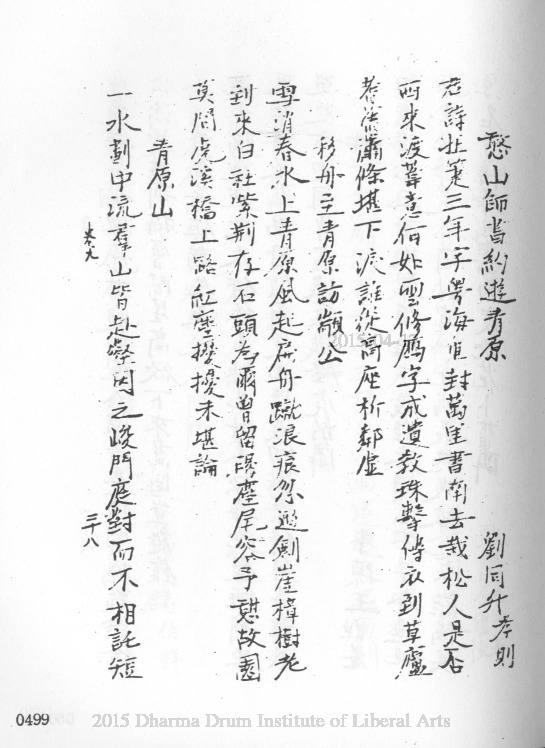 憨山師書約遊青原　劉同升孝則
三年字粵海自封萬里書南去栽松人是否
西來渡葦意何如雲修鴈字成遺教珠擊傳衣到草廬
蕭條堪下淚誰從高座析鄰虛
移舟至青原訪顓公
雪消春水上青原風起扁舟蹴浪痕忽遊劍崖樟樹老
到來白社紫荆存石頭為爾曾留塵尾容予憇故園
莫問虎溪橋上路紅塵擾擾未堪論
青原山
一水劃中流羣山皆赴壑因之峻門庭對而不相託短
卷九
三十八
2015
0499
2015 Dharma Drum Institute of Liberal Arts